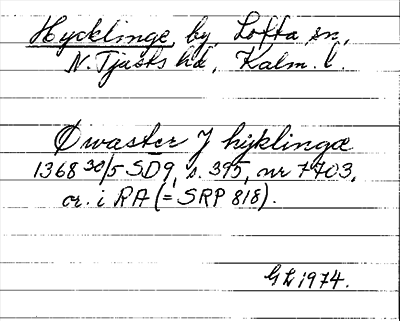 Hycklinge, by, Lofta sn,
N. Tjusts hd, Kalm. l.
Øwaster J hyklingæ
1368 30/5 SD9, s. 395, nr 7703,
or. i RA (= SRP 818).
GL 1974.